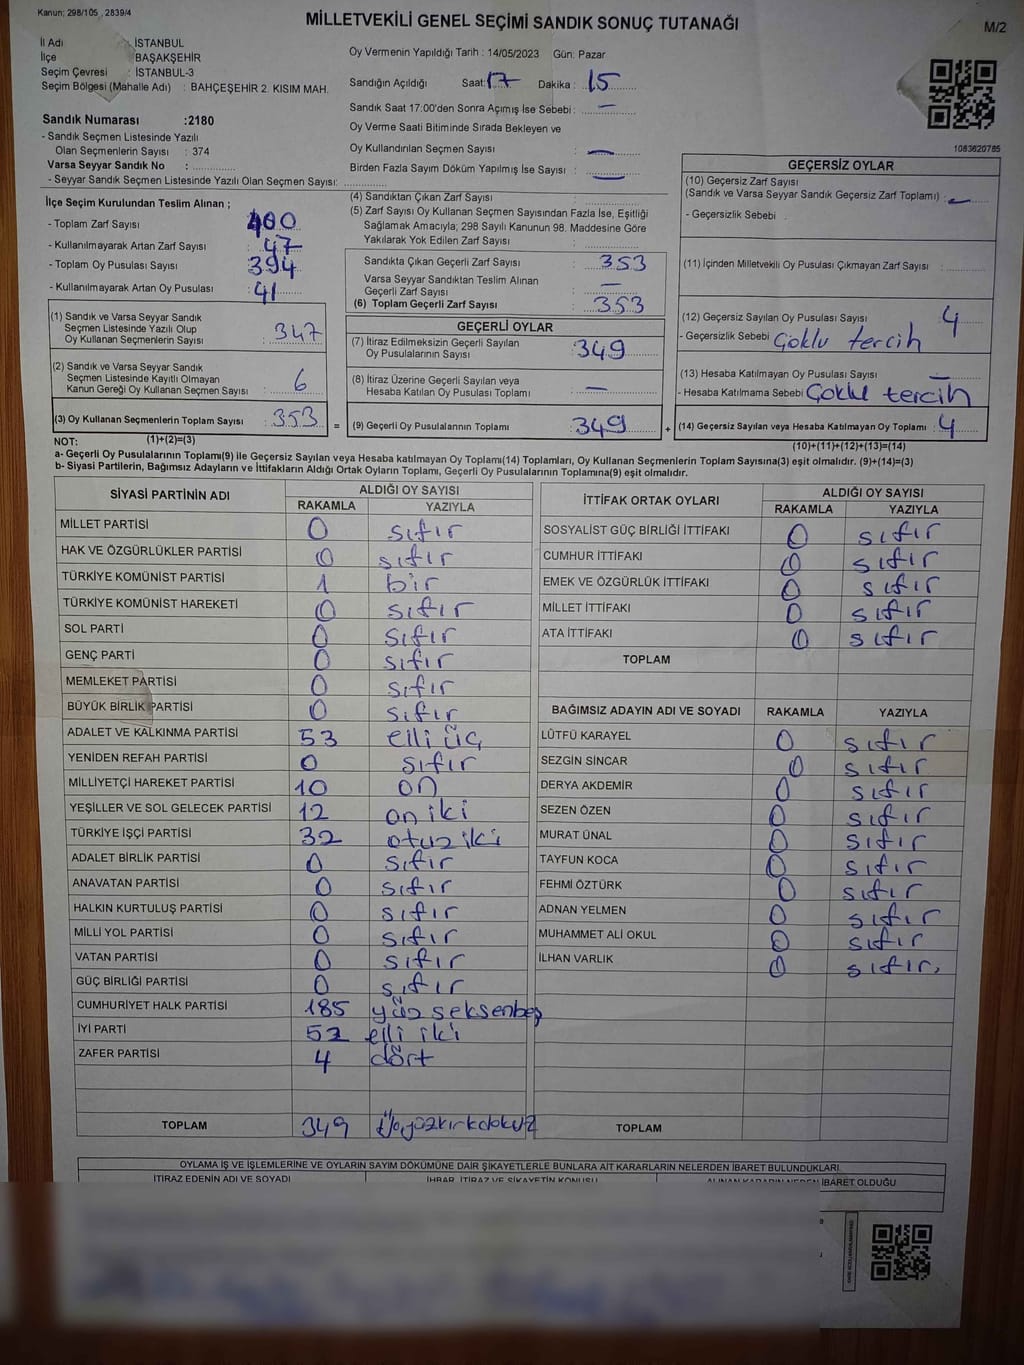 Kanun: 298/105 , 2839/4
MİLLETVEKİLİ GENEL SEÇİMİ SANDIK SONUÇ TUTANAĞI
M/2
İl Adı : İSTANBUL
İlçe BAŞAKŞEHİR
Seçim Çevresi : İSTANBUL-3
Seçim Bölgesi (Mahalle Adı) : BAHÇEŞEHİR 2. KISIM MAH.
Sandık Numarası :2180
- Sandık Seçmen Listesinde Yazılı
Olan Seçmenlerin Sayısı : 374
Varsa Seyyar Sandık No :
- Seyyar Sandık Seçmen Listesinde Yazılı Olan Seçmen Sayısı:
Oy Vermenin Yapıldığı Tarih : 14/05/2023 Gün: Pazar
Sandığın Açıldığı Saat: 17 Dakika : 15
Sandık Saat 17:00'den Sonra Açımış İse Sebebi : —
Oy Verme Saati Bitiminde Sırada Bekleyen ve
Oy Kullandırılan Seçmen Sayısı : —
Birden Fazla Sayım Döküm Yapılmış İse Sayısı : —
1083620785
İlçe Seçim Kurulundan Teslim Alınan ;
- Toplam Zarf Sayısı 400
- Kullanılmayarak Artan Zarf Sayısı : 47
- Toplam Oy Pusulası Sayısı 394
- Kullanılmayarak Artan Oy Pusulası : 41
(1) Sandık ve Varsa Seyyar Sandık
Seçmen Listesinde Yazılı Olup
Oy Kullanan Seçmenlerin Sayısı : 347
(2) Sandık ve Varsa Seyyar Sandık
Seçmen Listesinde Kayıtlı Olmayan
Kanun Gereği Oy Kullanan Seçmen Sayısı : 6
(3) Oy Kullanan Seçmenlerin Toplam Sayısı : 353 =
(4) Sandıktan Çıkan Zarf Sayısı :
(5) Zarf Sayısı Oy Kullanan Seçmen Sayısından Fazla İse, Eşitliği
Sağlamak Amacıyla; 298 Sayılı Kanunun 98. Maddesine Göre
Yakılarak Yok Edilen Zarf Sayısı :
Sandıkta Çıkan Geçerli Zarf Sayısı : 353
Varsa Seyyar Sandıktan Teslim Alınan
Geçerli Zarf Sayısı : —
(6) Toplam Geçerli Zarf Sayısı : 353
GEÇERLİ OYLAR
(7) İtiraz Edilmeksizin Geçerli Sayılan
Oy Pusulalarının Sayısı : 349
(8) İtiraz Üzerine Geçerli Sayılan veya
Hesaba Katılan Oy Pusulası Toplamı : —
(9) Geçerli Oy Pusulalarının Toplamı : 349 +
GEÇERSİZ OYLAR
(10) Geçersiz Zarf Sayısı
(Sandık ve Varsa Seyyar Sandık Geçersiz Zarf Toplamı) : —
- Geçersizlik Sebebi :
(11) İçinden Milletvekili Oy Pusulası Çıkmayan Zarf Sayısı :
(12) Geçersiz Sayılan Oy Pusulası Sayısı : 4
- Geçersizlik Sebebi Çoklu tercih
(13) Hesaba Katılmayan Oy Pusulası Sayısı : —
- Hesaba Katılmama Sebebi Çoklu tercih
(14) Geçersiz Sayılan veya Hesaba Katılmayan Oy Toplamı : 4
NOT: (1)+(2)=(3)
(10)+(11)+(12)+(13)=(14)
a- Geçerli Oy Pusulalarının Toplamı(9) ile Geçersiz Sayılan veya Hesaba katılmayan Oy Toplamı(14) Toplamları, Oy Kullanan Seçmenlerin Toplam Sayısına(3) eşit olmalıdır. (9)+(14)=(3)
b- Siyasi Partilerin, Bağımsız Adayların ve İttifakların Aldığı Ortak Oyların Toplamı, Geçerli Oy Pusulalarının Toplamına(9) eşit olmalıdır.
SİYASİ PARTİNİN ADI ALDIĞI OY SAYISI
RAKAMLA YAZIYLA
MİLLET PARTİSİ 0 sıfır
HAK VE ÖZGÜRLÜKLER PARTİSİ 0 sıfır
TÜRKİYE KOMÜNİST PARTİSİ 1 bir
TÜRKİYE KOMÜNİST HAREKETİ 0 sıfır
SOL PARTİ 0 sıfır
GENÇ PARTİ 0 sıfır
MEMLEKET PARTİSİ 0 sıfır
BÜYÜK BİRLİK PARTİSİ 0 sıfır
ADALET VE KALKINMA PARTİSİ 53 elli üç
YENİDEN REFAH PARTİSİ 0 sıfır
MİLLİYETÇİ HAREKET PARTİSİ 10 on
YEŞİLLER VE SOL GELECEK PARTİSİ 12 on iki
TÜRKİYE İŞÇİ PARTİSİ 32 otuz iki
ADALET BİRLİK PARTİSİ 0 sıfır
ANAVATAN PARTİSİ 0 sıfır
HALKIN KURTULUŞ PARTİSİ 0 sıfır
MİLLİ YOL PARTİSİ 0 sıfır
VATAN PARTİSİ 0 sıfır
GÜÇ BİRLİĞİ PARTİSİ 0 sıfır
CUMHURİYET HALK PARTİSİ 185 yüz seksenbeş
İYİ PARTİ 52 elli iki
ZAFER PARTİSİ 4 dört
TOPLAM 349 üçyüzkırkdokuz
İTTİFAK ORTAK OYLARI ALDIĞI OY SAYISI
RAKAMLA YAZIYLA
SOSYALİST GÜÇ BİRLİĞİ İTTİFAKI 0 sıfır
CUMHUR İTTİFAKI 0 sıfır
EMEK VE ÖZGÜRLÜK İTTİFAKI 0 sıfır
MİLLET İTTİFAKI 0 sıfır
ATA İTTİFAKI 0 sıfır
TOPLAM
BAĞIMSIZ ADAYIN ADI VE SOYADI RAKAMLA YAZIYLA
LÜTFÜ KARAYEL 0 sıfır
SEZGİN SİNCAR 0 sıfır
DERYA AKDEMİR 0 sıfır
SEZEN ÖZEN 0 sıfır
MURAT ÜNAL 0 sıfır
TAYFUN KOCA 0 sıfır
FEHMİ ÖZTÜRK 0 sıfır
ADNAN YELMEN 0 sıfır
MUHAMMET ALİ OKUL 0 sıfır
İLHAN VARLIK 0 sıfır.
TOPLAM
OYLAMA İŞ VE İŞLEMLERİNE VE OYLARIN SAYIM DÖKÜMÜNE DAİR ŞİKAYETLERLE BUNLARA AİT KARARLARIN NELERDEN İBARET BULUNDUKLARI
İTİRAZ EDENİN ADI VE SOYADI İHBAR, İTİRAZ VE ŞİKAYETİN KONUSU ALINAN KARARIN NEDEN İBARET OLDUĞU